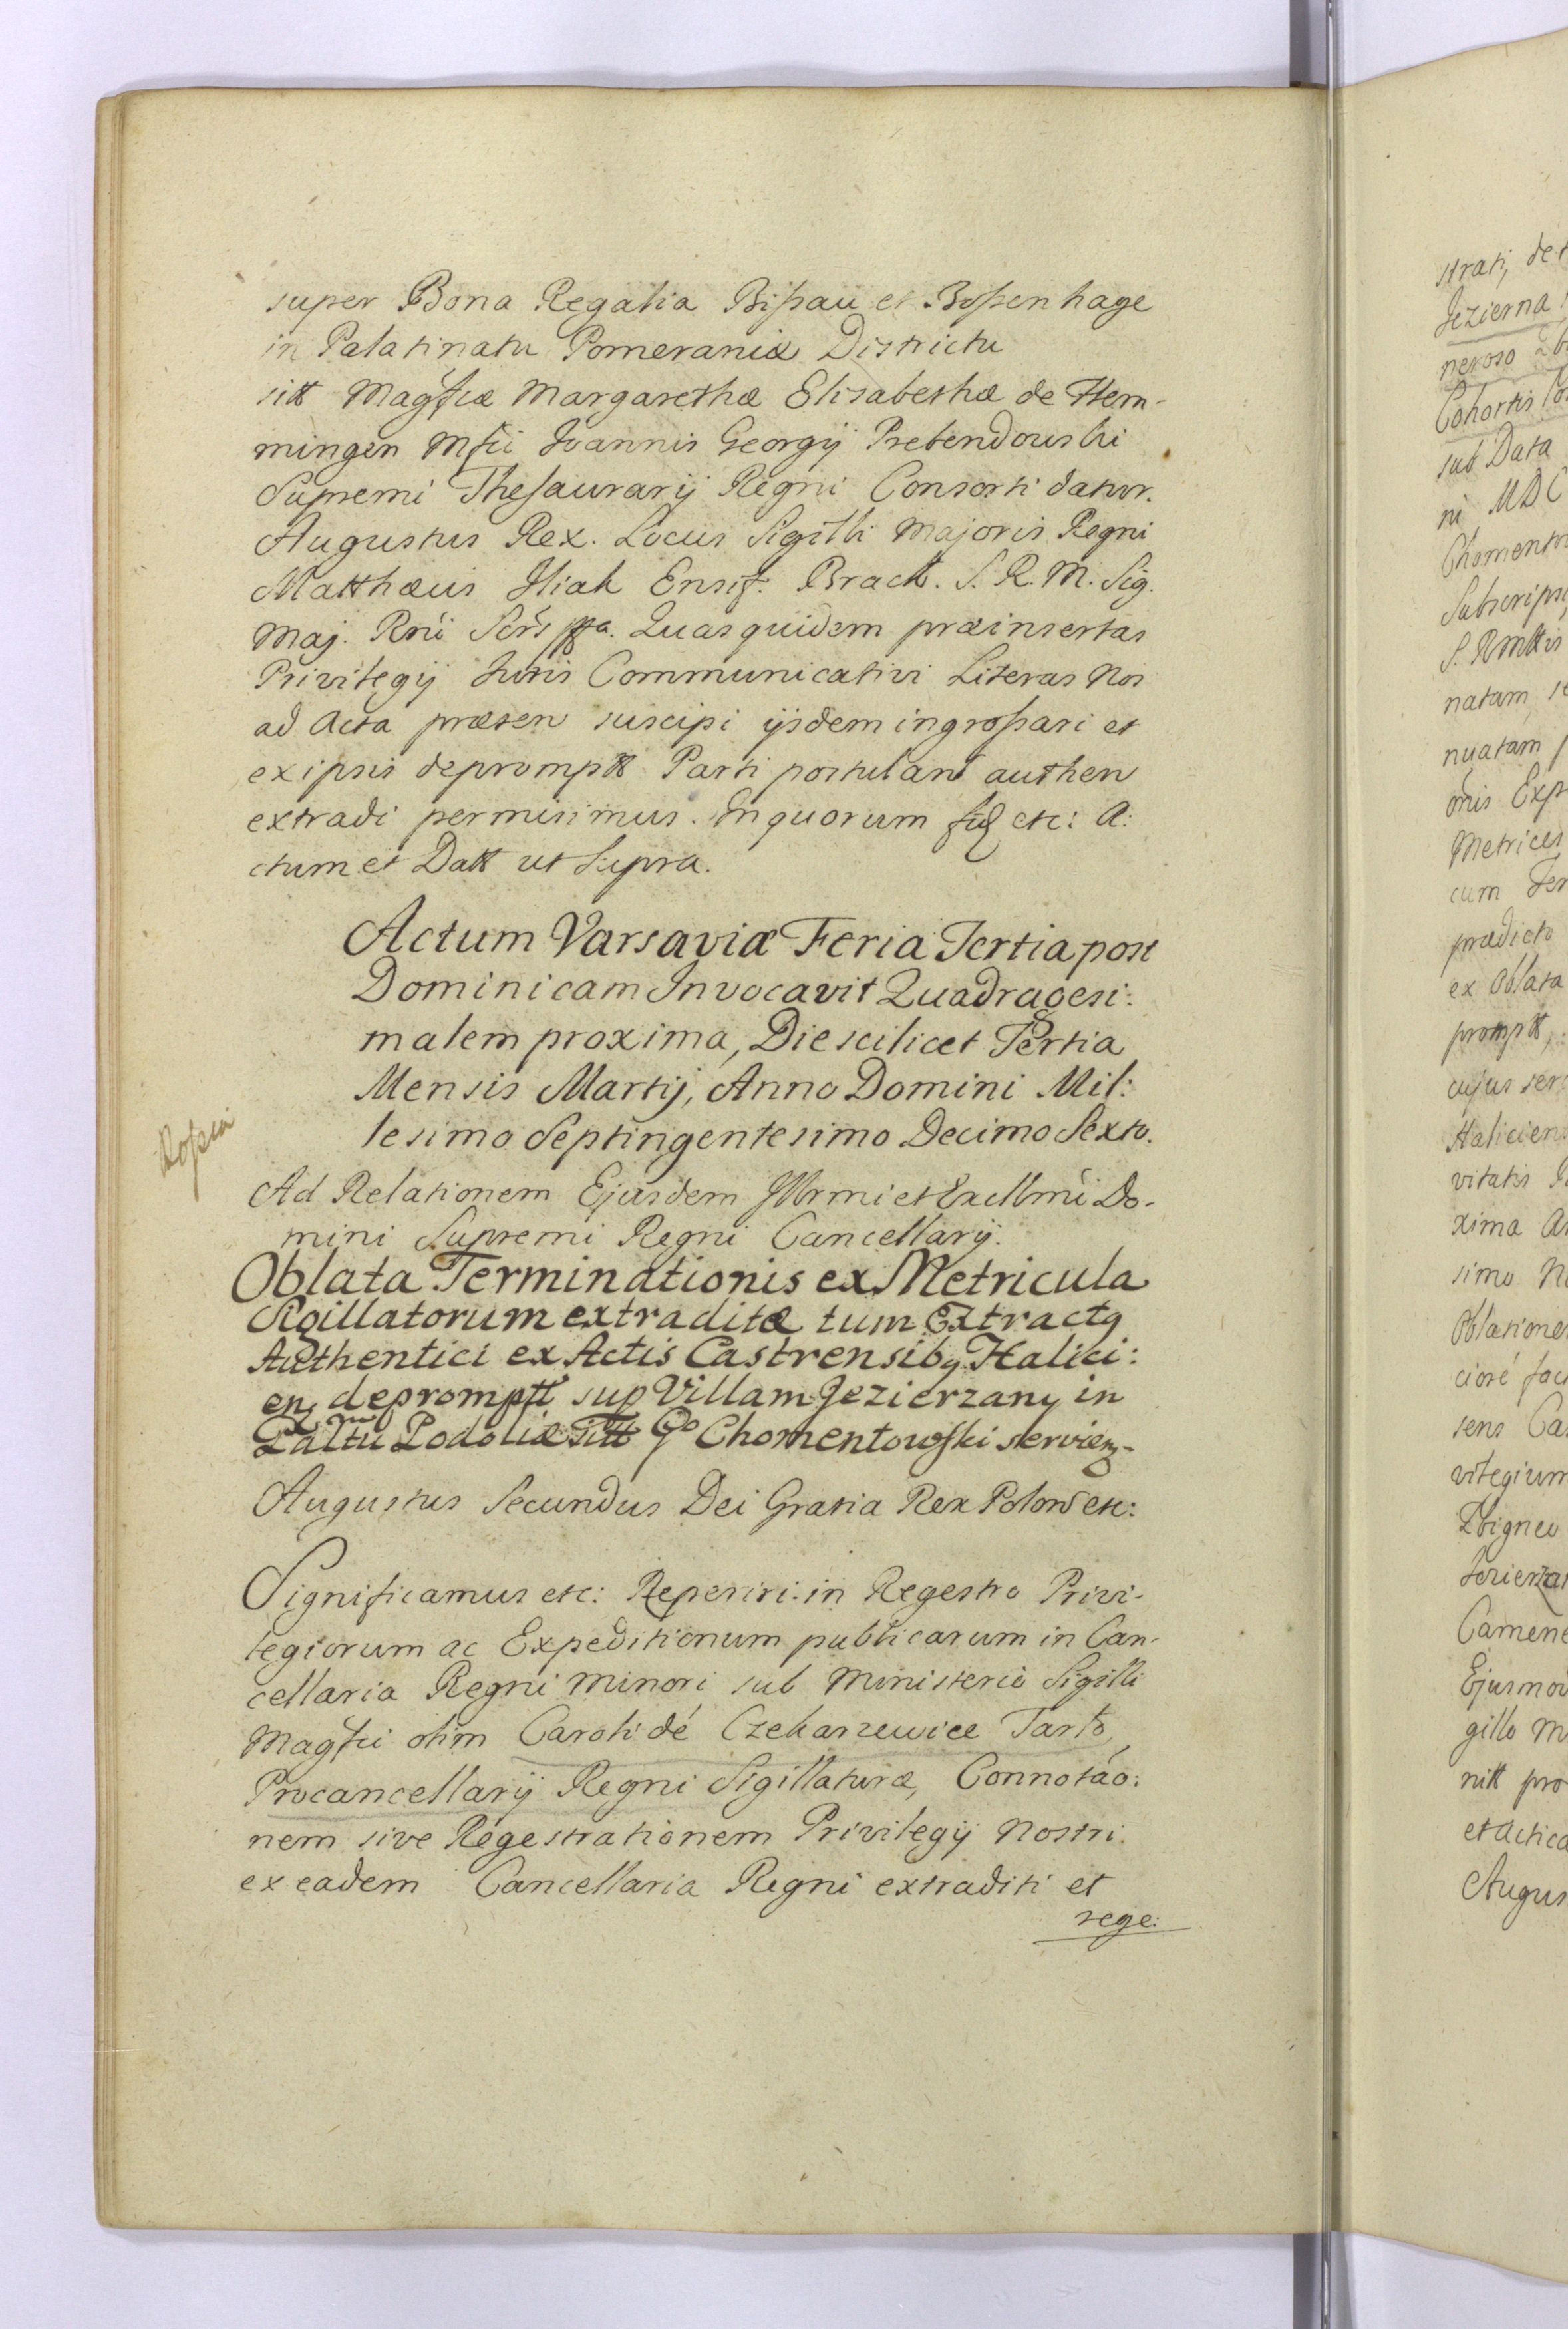 super Bona Regalia Bißau et Boßenhage
in Palatinatu Pomeraniæ Districtu
sitt Magfcæ Margarethæ Elisabethæ de Hem-
mingen Mfci Joannis Georgij Prebendowski
Supremi Thesaurarij Regni Consorti datur.
Augustus Rex. Locus Sigilli Majoris Regni
Matthæus Iliak Ensif. Brack. S. R. M. Sig.
Maj. Rni Scrs ppa. Quas quidem præinsertas
Privilegij Juris Communicativi Literas Nos
ad Acta præsen suscipi ijsdem ingroßari et
ex ipsis deprompt Parti postulan authen
extradi permisimus. In quorum fid etc: A:
ctum et Datt ut Supra.
Actum Varsaviæ Feria Tertia post
Dominicam Invocavit Quadragesi:
malem proxima, Die scilicet Tertia
Mensis Martij, Anno Domini Mil:
lesimo Septingentesimo Decimo Sexto.
Ad Relationem Ejusdem Illrmi et Excllmi Do-
mini Supremi Regni Cancellarij.
Oblata Terminationis ex Metricula
Sigillatorum extraditæ tum Extractq
Authentici ex Actis Castrensibq Halici:
en deprompt sup Villam Jezierzany in
Paltu Podoliæ sitt Go Chomentowski servien-
Augustus Secundus Dei Gratia Rex Polon etc:
Significamus etc: Reperiri in Regestro Privi-
legiorum ac Expeditionum publicarum in Can-
cellaria Regni Minori sub Ministerio Sigilli
Magfci olim Caroli dé Czekarzewice Tarło,
Procancellarij Regni Sigillaturæ, Connotáo:
nem sive Regestrationem Privilegij Nostri
ex eadem Cancellaria Regni extraditi et
rege:
strati, de
Jezierna
neroso
Cohortis
sub Data
ni MDC
Chomentos
Subscripsi
S. RMttis
natam
nuatam
omis Exp
Metrices
cum
prædicto
ex Oblata
promptt,
cujus
Halicien
vitatis
xima
simo
Oblatione
cioné
sens
vilegium
Zbigneo
Jezierza
Camene
Ejusmo
gillo
nitt pro
et actica
Augus